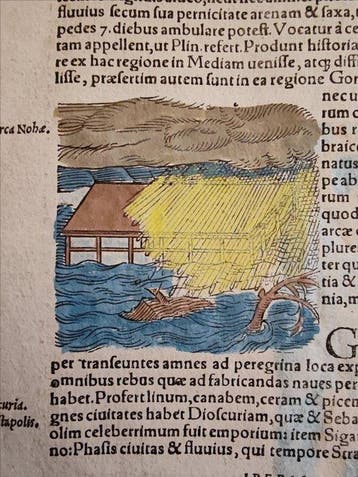 fluuius secum sua pernicitate arenam & saxa, u
pedes 7. diebus ambulare potest. Vocatur à ce
tam appellent, ut Plin. refert. Produnt historiæ
re ex hac regione in Mediam uenisse, atq; diff
lisse, præsertim autem sunt in ea regione Gor
rca Nohæ.
nec u
rum c
bus r
braic
natus
pe ab
rum
quod
arcæ
plure
ter qu
tia &
nia, m
G
per transeuntes amnes ad peregrina loca exp
omnibus rebus quæ ad fabricandas naues per
habet. Profert linum, canabem, ceram & picem
curia.
gnes ciuitates habet Dioscuriam, quæ & Seba
stapolis.
olim celeberrimum fuit emporium: item Sigar
no: Phasis ciuitas & fluuius, qui tempore Stra